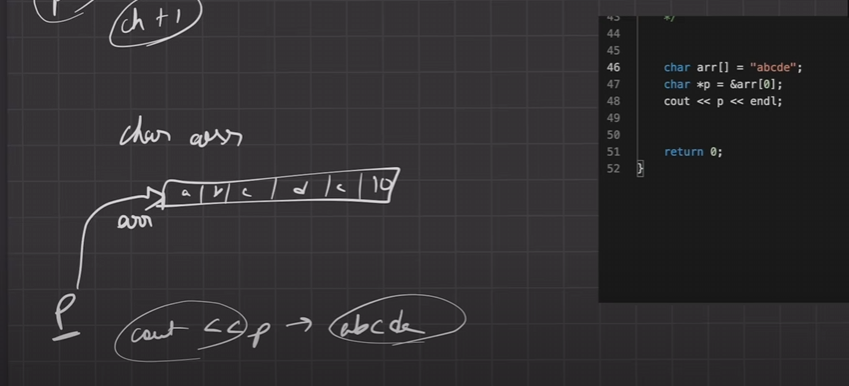 ch + 1
char arr
a | b | c | d | e | \0
arr
P
cout << p → abcde
43 */
44
45
46 char arr[] = "abcde";
47 char *p = &arr[0];
48 cout << p << endl;
49
50
51 return 0;
52 }